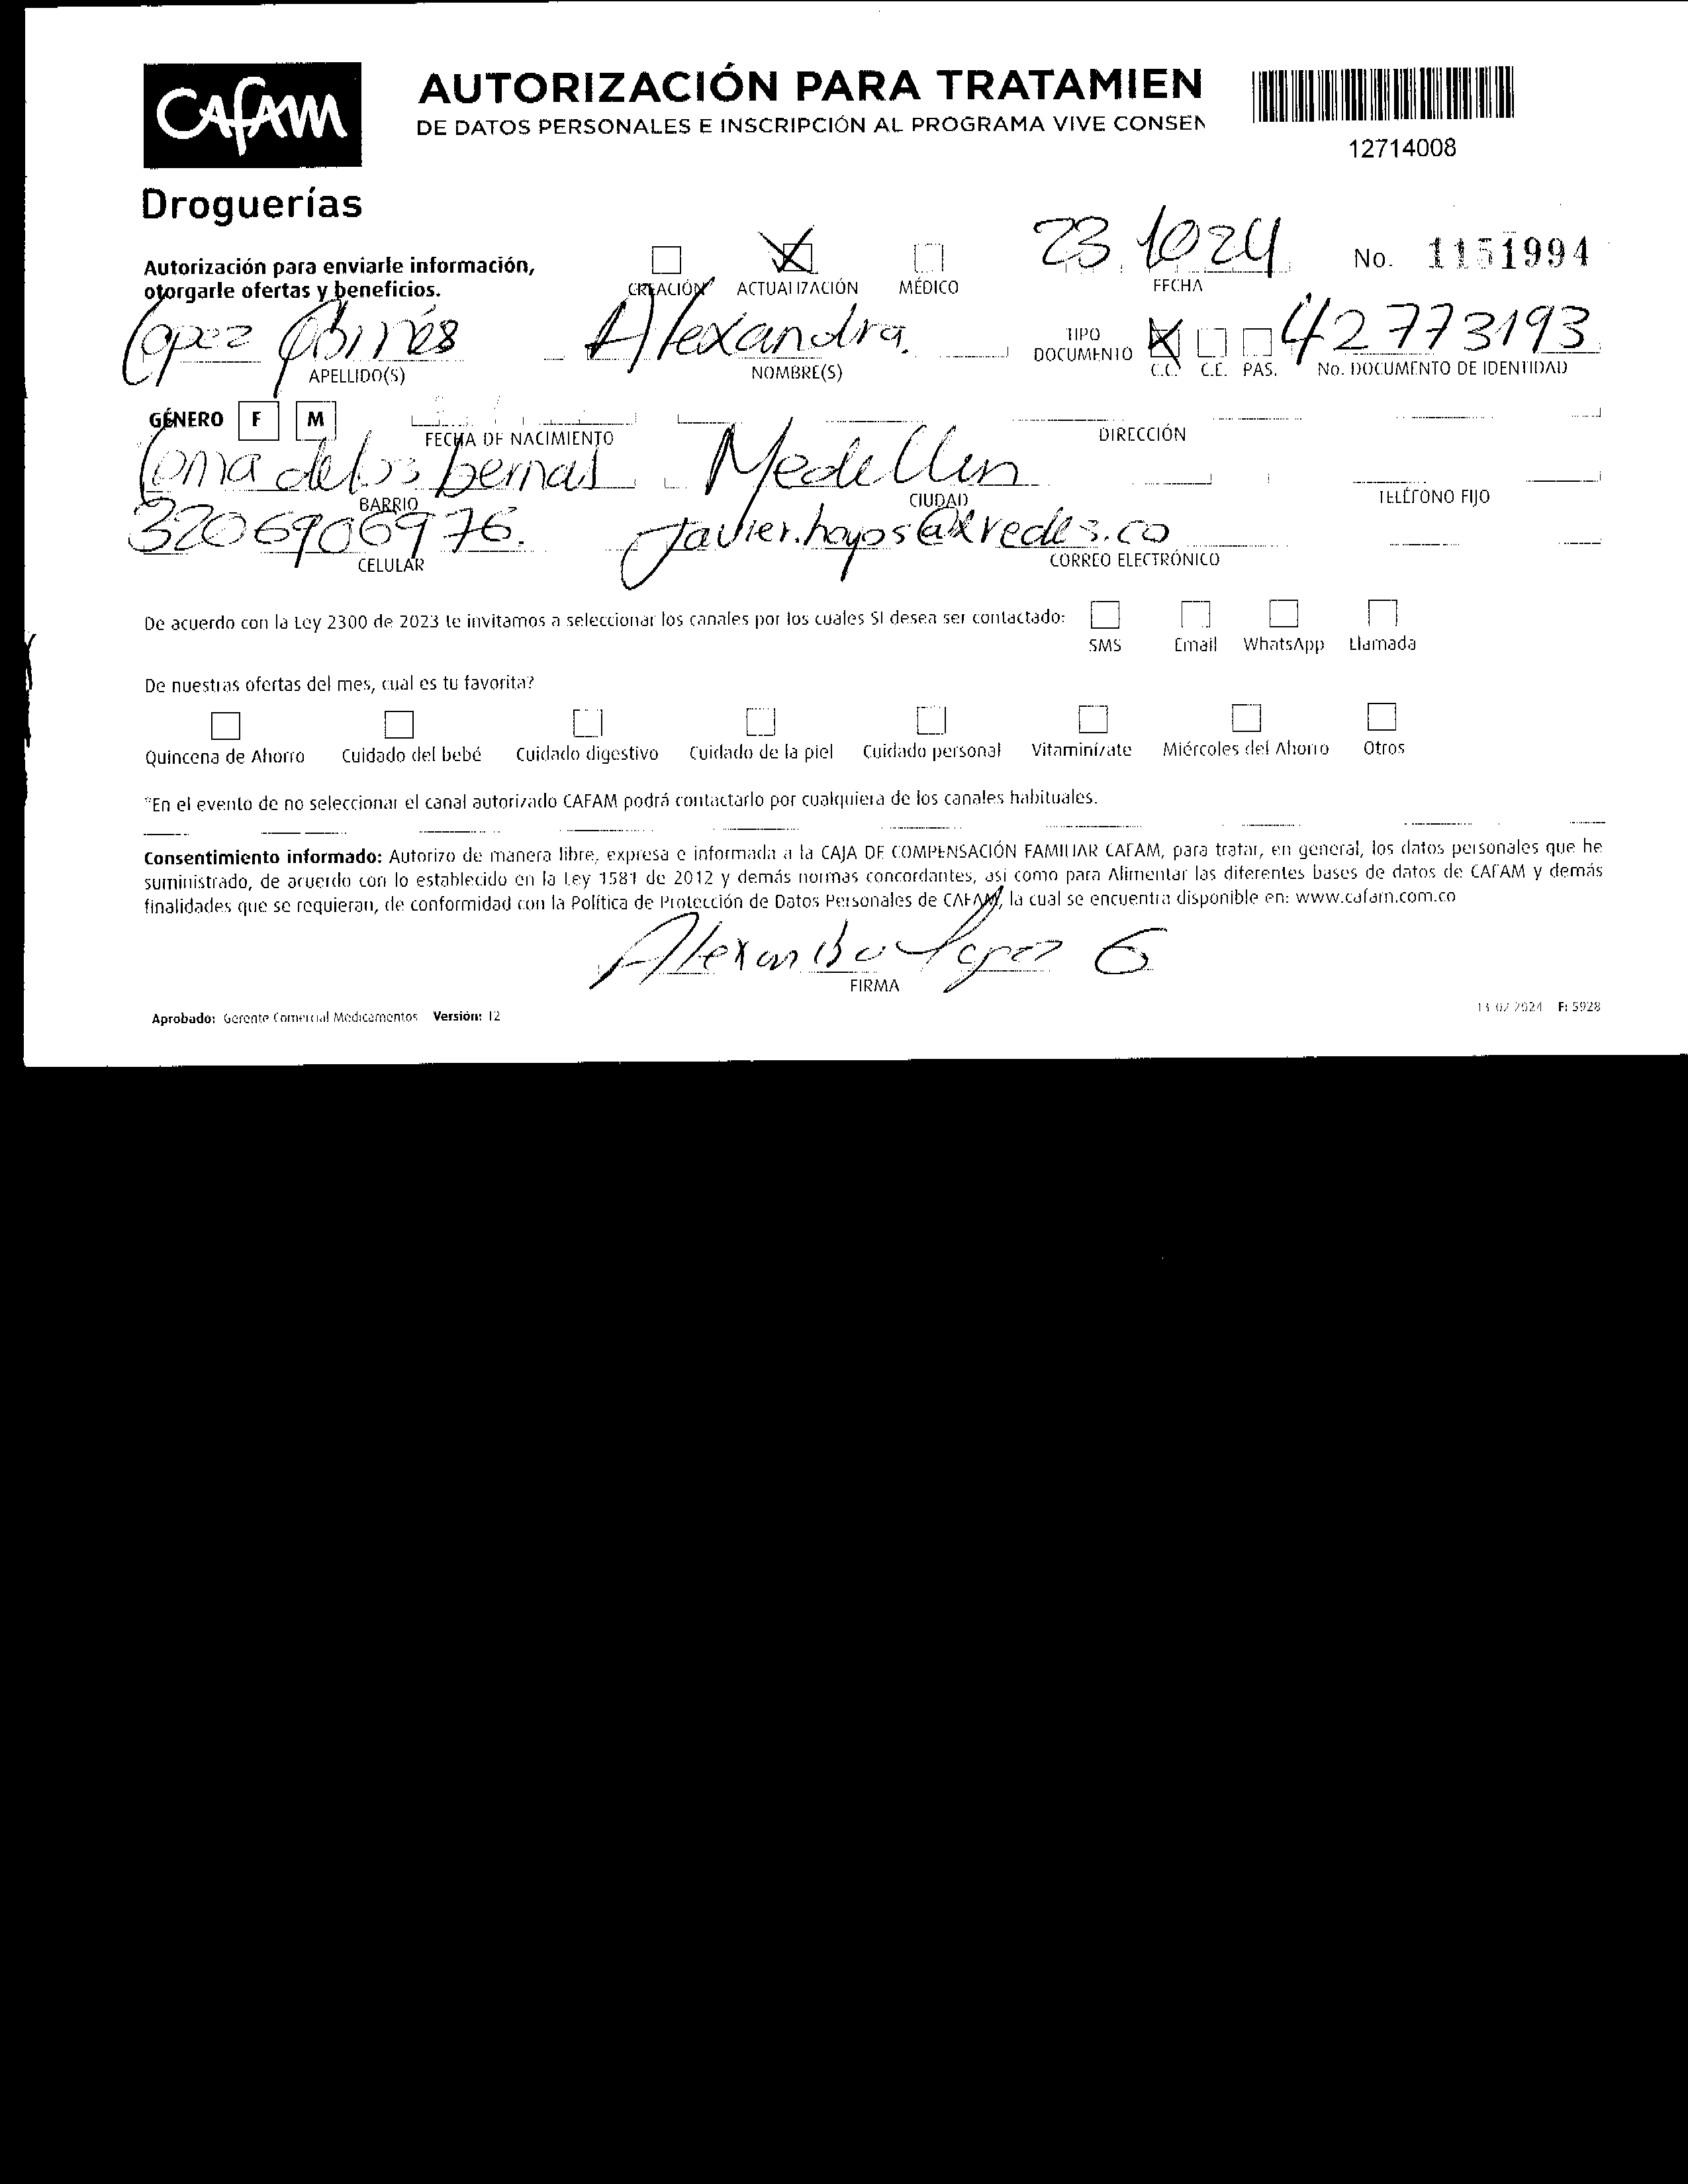 CAFAM
Droguerías
AUTORIZACIÓN PARA TRATAMIEN
DE DATOS PERSONALES E INSCRIPCIÓN AL PROGRAMA VIVE CONSEN
12714008
Autorización para enviarle información,
otorgarle ofertas y beneficios.
CREACIÓN ACTUALIZACIÓN MÉDICO
23 10 24
FECHA
No. 1151994
Lopez Alexandra.
APELLIDO(S) NOMBRE(S)
TIPO
DOCUMENTO
C.C. C.E. PAS.
42773193
No. DOCUMENTO DE IDENTIDAD
GÉNERO F M
FECHA DE NACIMIENTO DIRECCIÓN
Loma de los bernal Medellin
BARRIO CIUDAD TELÉFONO FIJO
3206906976. Javier.hoyos@ .co
CELULAR CORREO ELECTRÓNICO
De acuerdo con la Ley 2300 de 2023 te invitamos a seleccionar los canales por los cuales SI desea ser contactado:
SMS Email WhatsApp Llamada
De nuestras ofertas del mes, cual es tu favorita?
Quincena de Ahorro Cuidado del bebé Cuidado digestivo Cuidado de la piel Cuidado personal Vitaminízate Miércoles del Ahorro Otros
*En el evento de no seleccionar el canal autorizado CAFAM podrá contactarlo por cualquiera de los canales habituales.
Consentimiento informado: Autorizo de manera libre, expresa e informada a la CAJA DE COMPENSACIÓN FAMILIAR CAFAM, para tratar, en general, los datos personales que he
suministrado, de acuerdo con lo establecido en la Ley 1581 de 2012 y demás normas concordantes, asi como para Alimentar las diferentes bases de datos de CAFAM y demás
finalidades que se requieran, de conformidad con la Política de Protección de Datos Personales de CAFAM, la cual se encuentra disponible en: www.cafam.com.co
Alexandra Lopez G
FIRMA
Aprobado: Gerente Comercial Medicamentos Versión: 12
13 02 2024 F: 5928